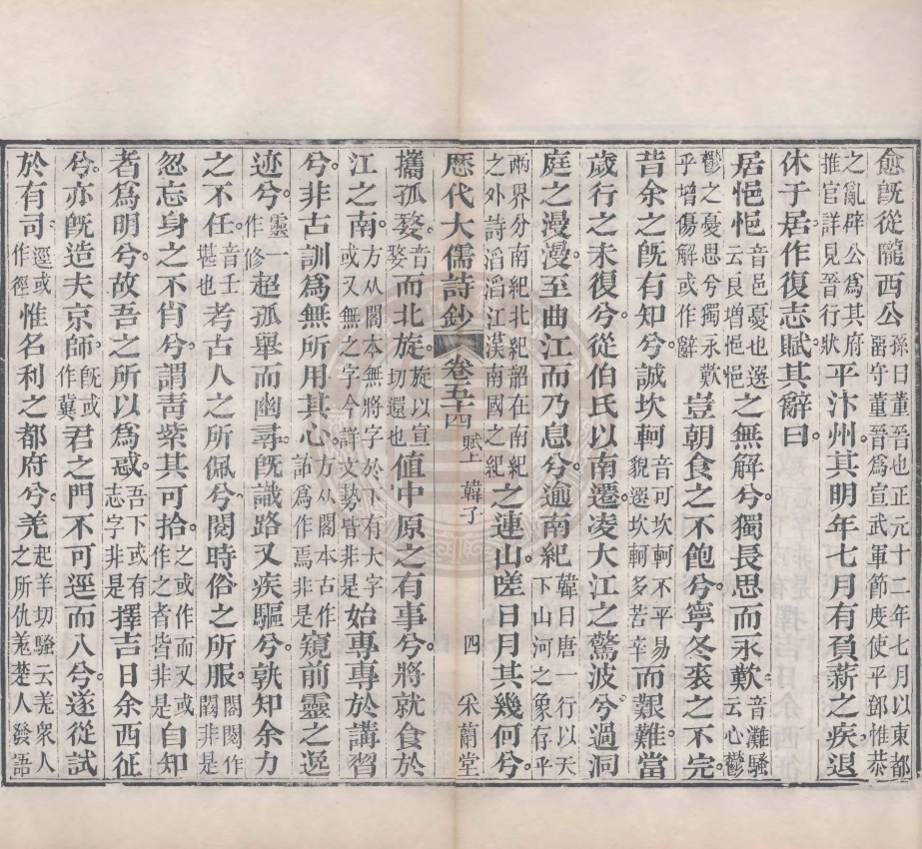 愈旣從隴西公孫曰董晉也正元十二年七月以東都畱守董晉爲宣武軍節度使平鄧惟恭
之亂辟公爲其府推官詳見晉行狀平汴州。其明年七月有負薪之疾。退
休于居作復志賦。其辭曰
居悒悒音邑憂也選云良增悒悒之無解兮獨長思而永歎。音灘騷云心鬱
鬱之憂思兮獨永歎乎增傷解或作辭豈朝食之不飽兮寧冬裘之不完。
昔余之旣有知兮誠坎軻音可坎軻不平易貌選坎軻多苦辛而艱難。當
歲行之未復兮從伯氏以南遷。凌大江之驚波兮過洞
庭之漫漫。至曲江而乃息兮逾南紀韓曰唐一行以天下山河之象存乎
兩界分南紀北紀韶在南紀之外詩滔滔江漢南國之紀之連山。嗟日月其幾何兮
歷代大儒詩鈔 卷五十四 賦上 韓子 四 采蘭堂
攜孤嫠音而北旋。旋以宣切還也値中原之有事兮。將就食於
江之南。方从閣本無將字於下有大字或又無之字今詳文勢皆非是始專專於講習
兮。非古訓爲無所用其心。方从閣本古作詁爲作焉非是窺前靈之逸
迹兮。靈一作修超孤舉而幽尋。旣識路又疾驅兮。孰知余力
之不任。音壬堪也考古人之所佩兮。閱時俗之所服。閣閱作非是
忽忘身之不肖兮。謂靑紫其可拾。之或作而又或作之者皆非是自知
者爲明兮。故吾之所以爲惑。吾下或有志字非是擇吉日余西征
兮。亦旣造夫京師。旣或作冀君之門不可逕而入兮。遂從試
於有司。逕或作徑惟名利之都府兮。羌起羊切騷云羌衆人之所仇羌楚人發語